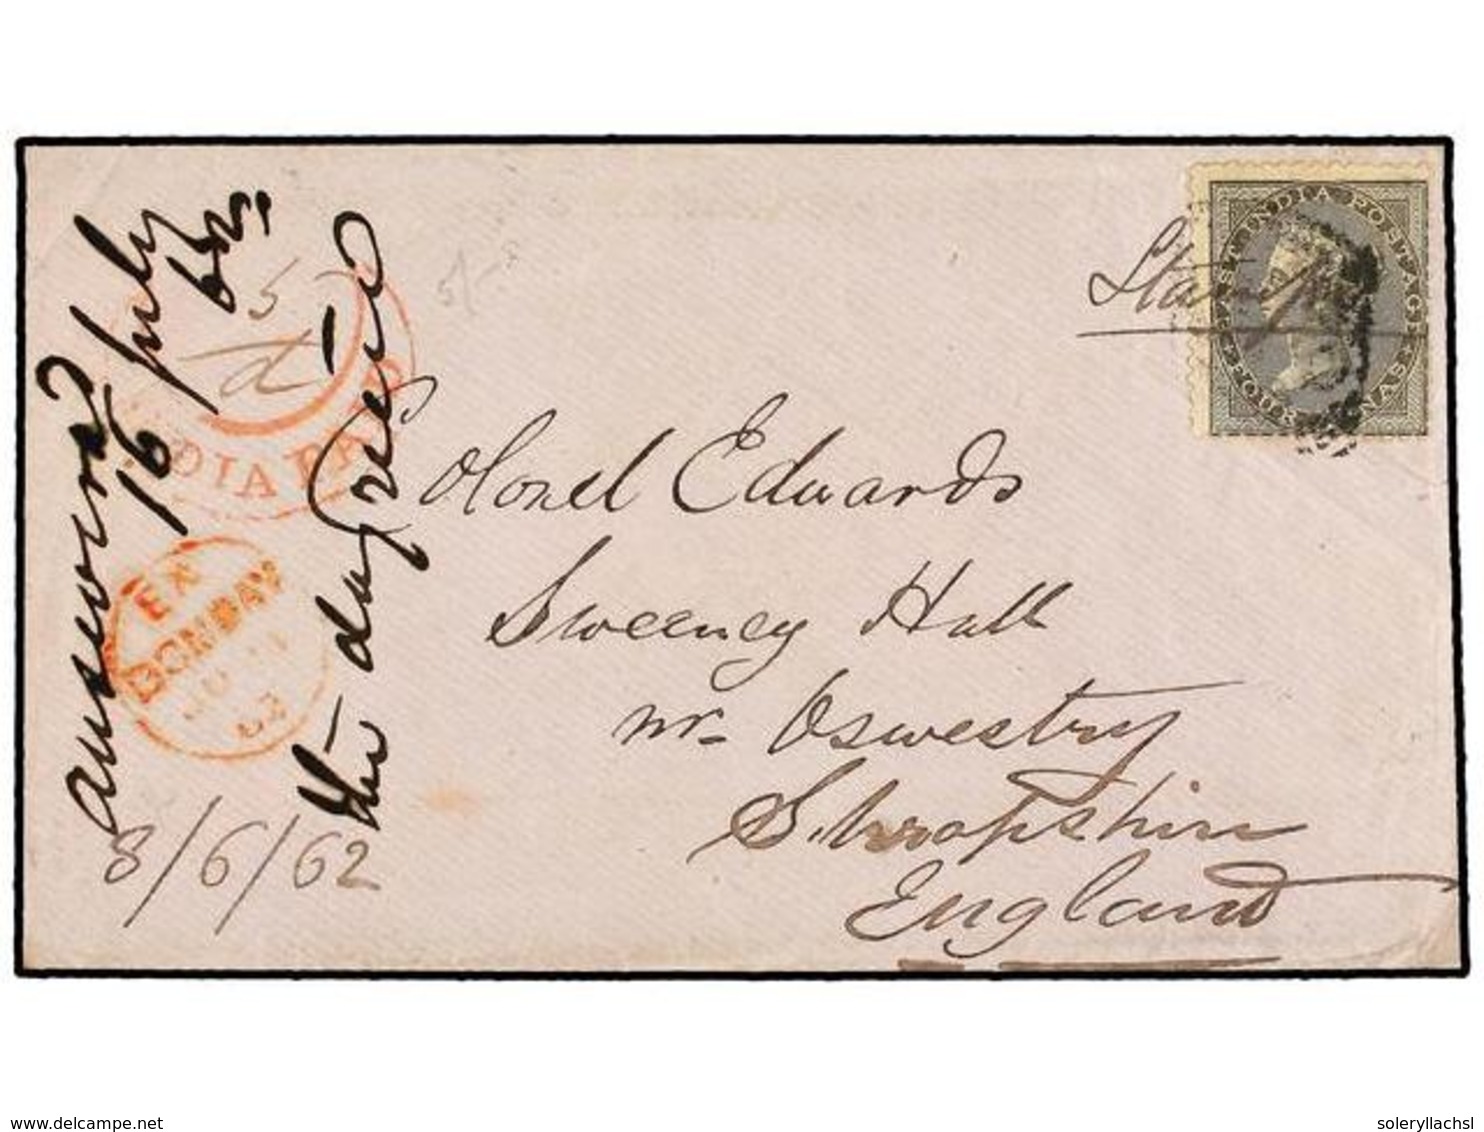 answered
16 July
62
the day recd
5
d
INDIA PAID
5/-
Stamp
EAST INDIA POSTAGE
FOUR ANNAS
Colonel Edwards
Sweeney Hall
nr. Oswestry
Shropshire
England
BOMBAY
8/6/62
delcampe.net
soleryllachsl